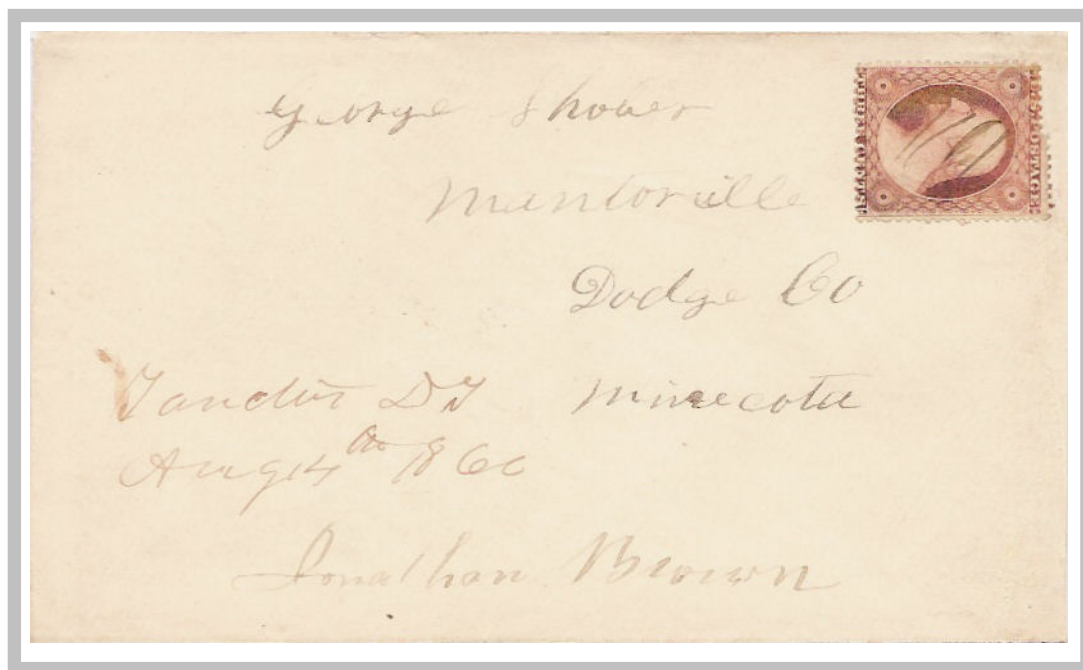 George Shober
Mantorville
Dodge Co
Minecota
DT
Aug 14th 1860
Jonathan Brown
U.S. POSTAGE
THREE CENTS